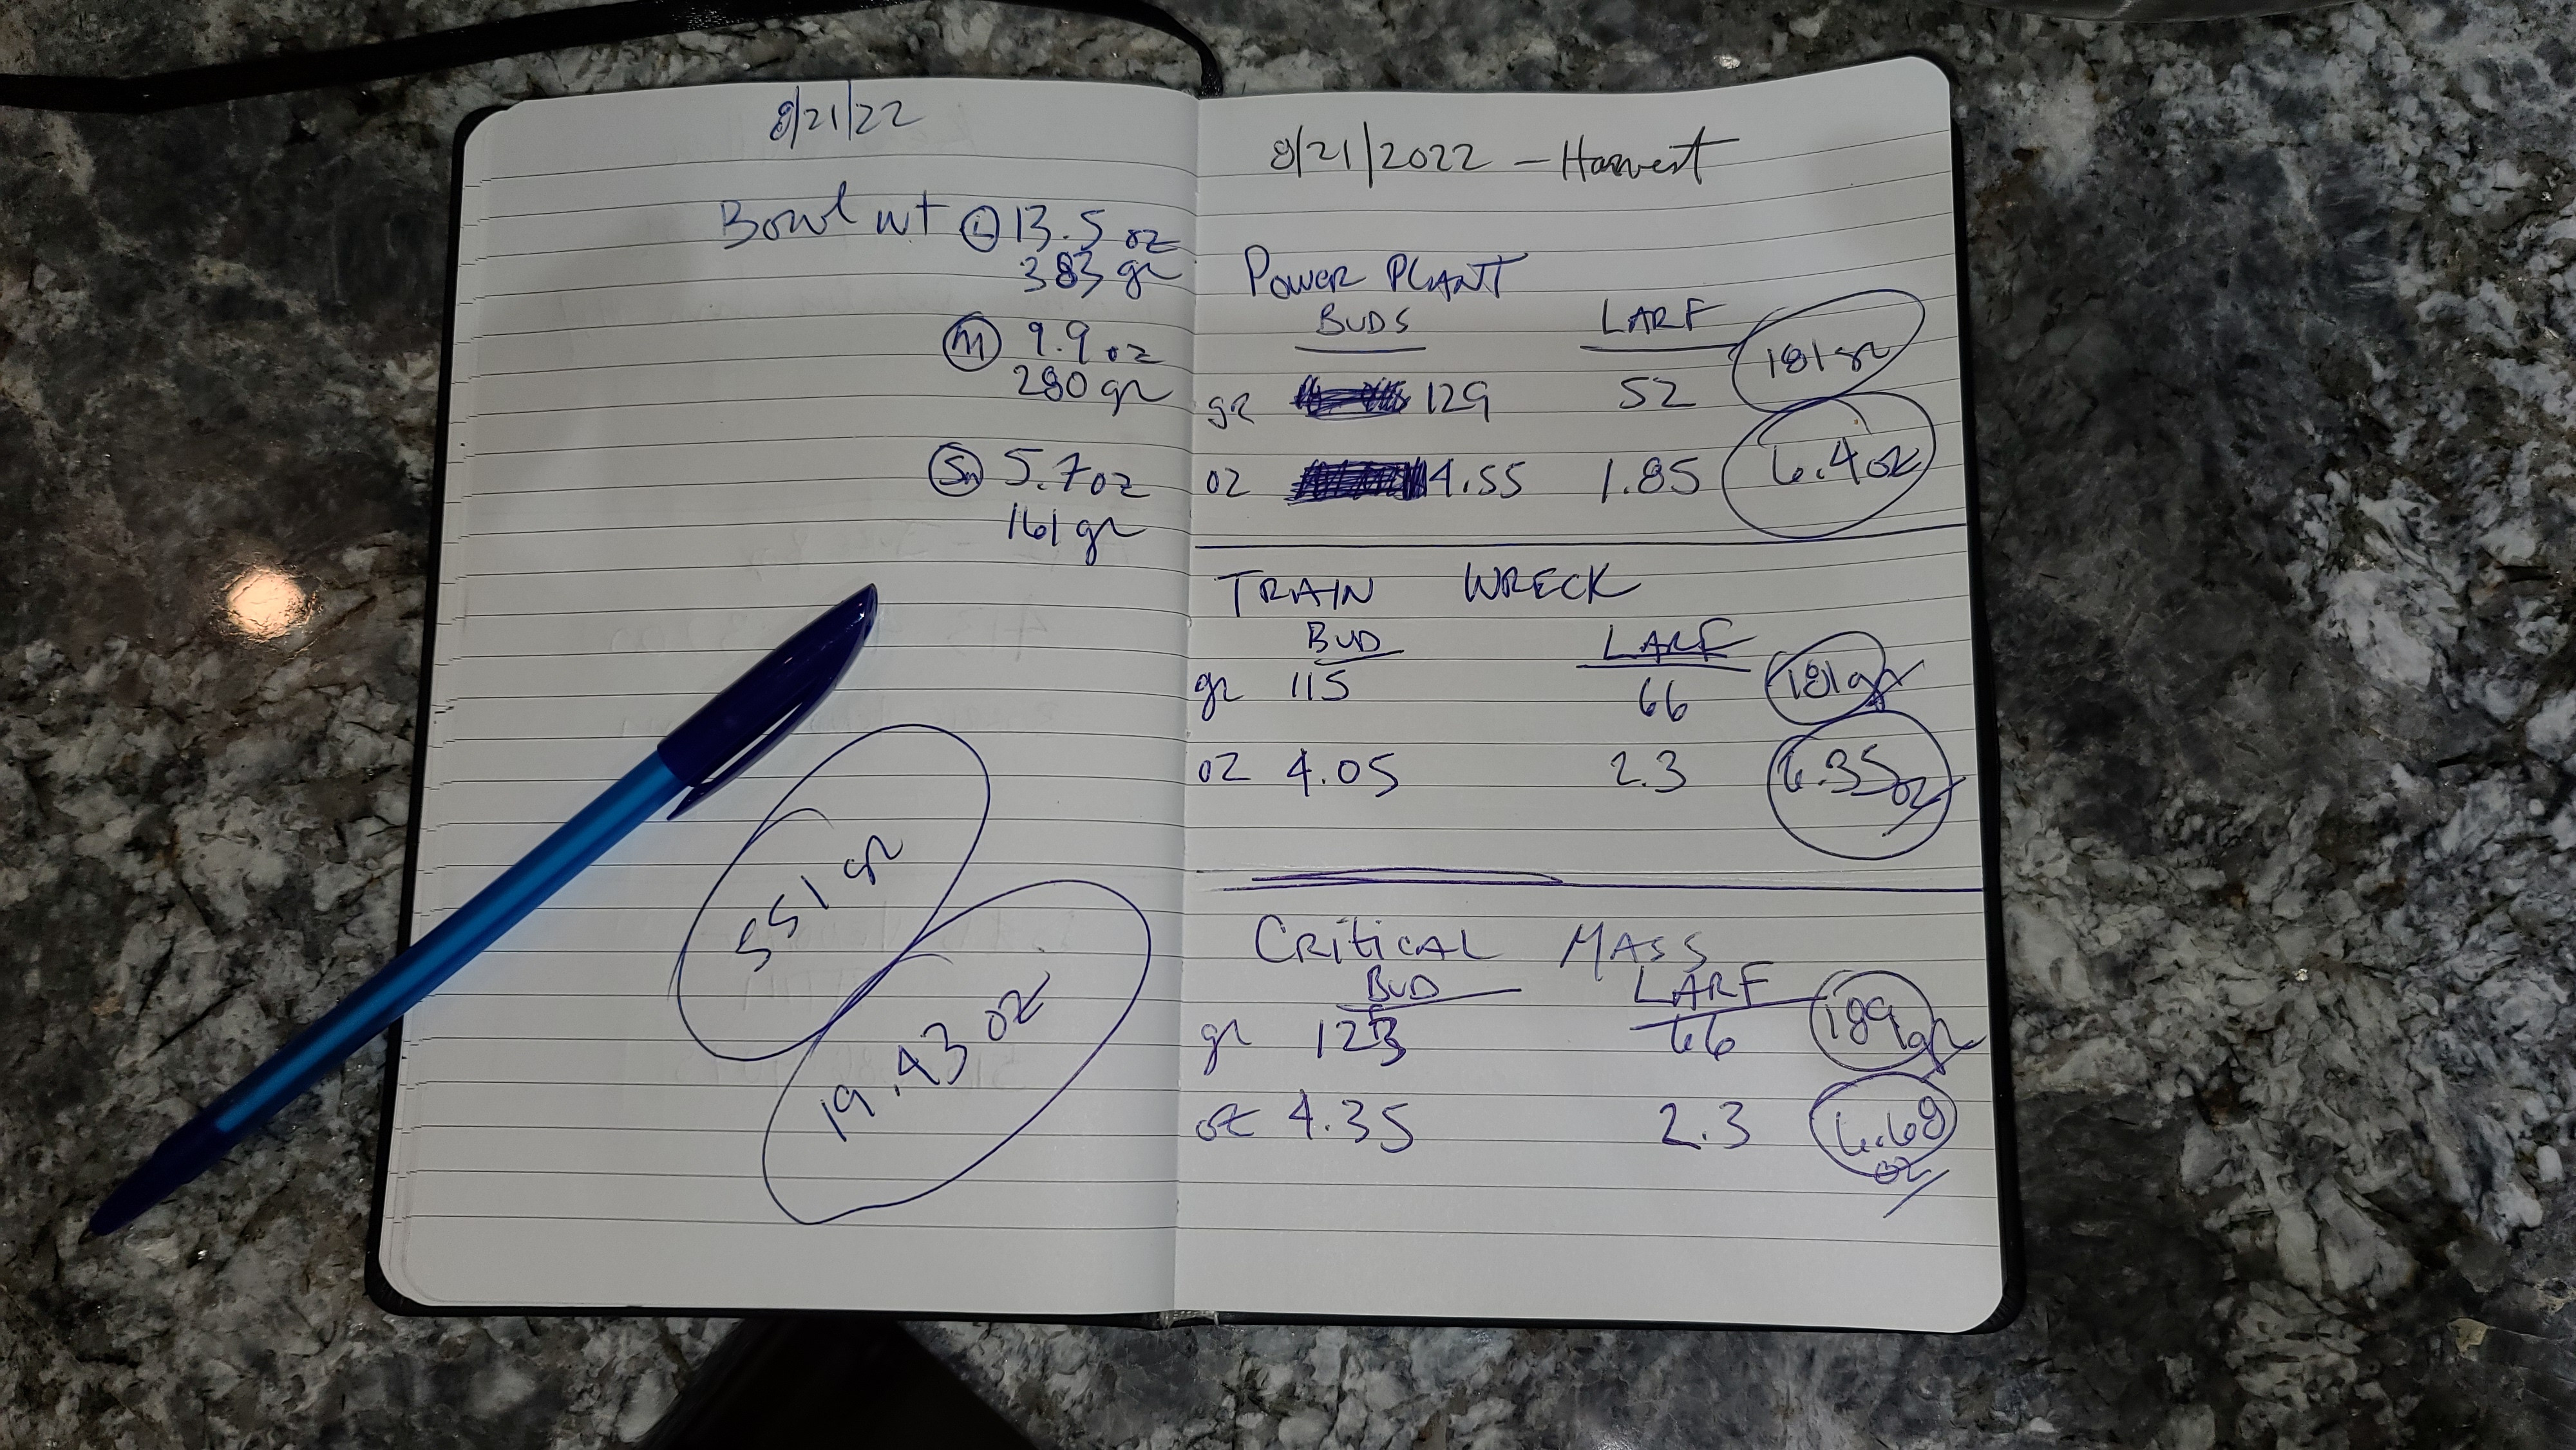 8/21/22
Bowl wt L 13.5 oz
383 gr
M 9.9 oz
280 gr
Sm 5.7 oz
161 gr
551 gr
19.43 oz
8/21/2022 - Harvest
POWER PLANT
BUDS LARF
181 gr
gr 129 52
oz 4.55 1.85 6.4 oz
TRAIN WRECK
BUD LARF
gr 115 66 181 gr
oz 4.05 2.3 6.35 oz
CRITICAL MASS
BUD LARF
gr 123 66 189 gr
oz 4.35 2.3 6.68 oz